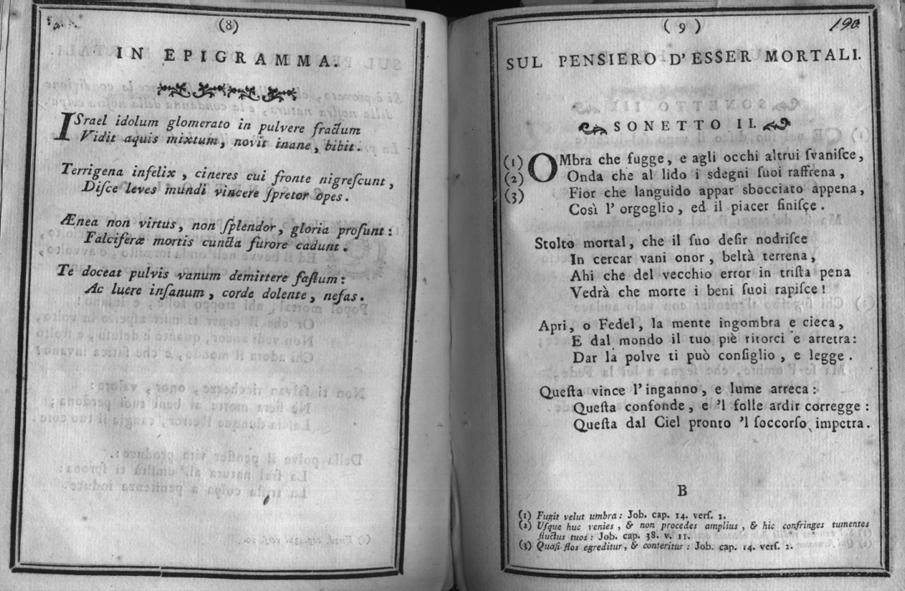 (8)
IN EPIGRAMMA.
ISrael idolum glomerato in pulvere fractum
Vidit aquis mixtum, novit inane, bibit.
Terrigena infelix, cineres cui fronte nigrescunt,
Disce leves mundi vincere spretor opes.
Ænea non virtus, non splendor, gloria prosunt:
Falciferæ mortis cuncta furore cadunt.
Te doceat pulvis vanum demittere fastum:
Ac luere insanum, corde dolente, nefas.
(9)
190
SUL PENSIERO D'ESSER MORTALI.
SONETTO II.
(1) OMbra che fugge, e agli occhi altrui svanisce,
(2) Onda che al lido i sdegni suoi raffrena,
(3) Fior che languido appar sbocciato appena,
Così l'orgoglio, ed il piacer finisçe.
Stolto mortal, che il suo desir nodrisce
In cercar vani onor, beltà terrena,
Ahi che del vecchio error in trista pena
Vedrà che morte i beni suoi rapisce!
Apri, o Fedel, la mente ingombra e cieca,
E dal mondo il tuo piè ritorci e arretra:
Dar la polve ti può consiglio, e legge.
Questa vince l'inganno, e lume arreca:
Questa confonde, e 'l folle ardir corregge:
Questa dal Ciel pronto 'l soccorso impetra.
B
(1) Fugit velut umbra: Job. cap. 14. vers. 2.
(2) Usque huc venies, & non procedes amplius, & hic confringes tumentes
fluctus tuos: Job. cap. 38. v. 11.
(3) Quasi flos egreditur, & conteritur: Job. cap. 14. vers. 2.